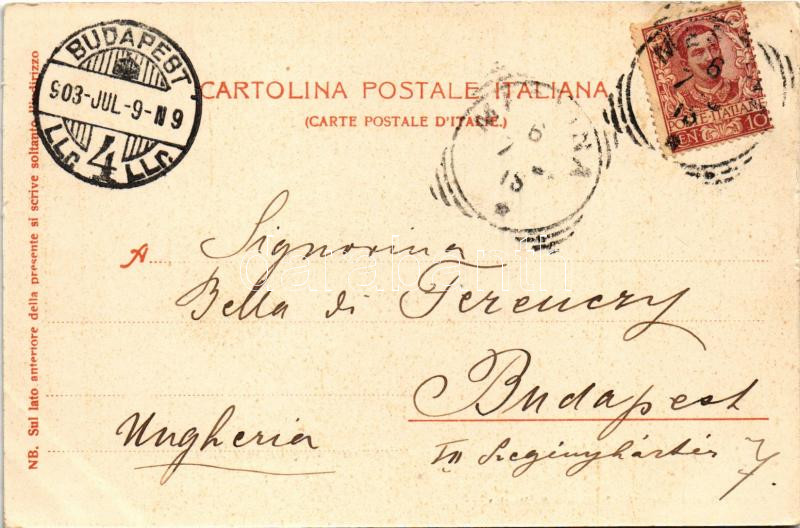 BUDAPEST
903-JUL-9-N9
4
CARTOLINA POSTALE ITALIANA
(CARTE POSTALE D'ITALIE.)
MESSINA
POSTE ITALIANE
CEN 10
NB. Sul lato anteriore della presente si scrive soltanto l'indirizzo
A Signorina
Bella di Ferenczy
Budapest
Ungheria
Szegényházтér 7.
darabanth